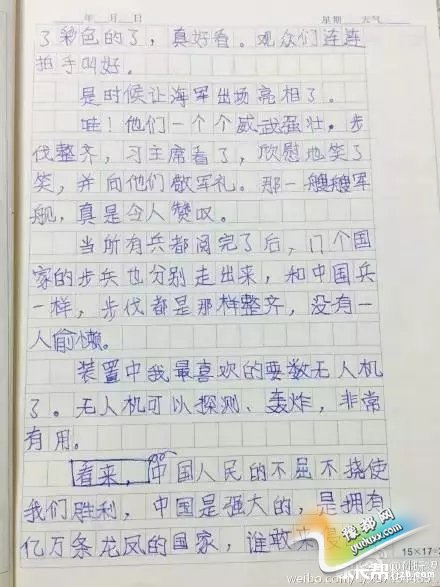 年 月 日 星期 天气
了彩色的了，真好看。观众们连连
拍手叫好。
是时候让海军出场亮相了。
哇！他们一个个威武强壮。步
伐整齐，习主席看了，欣慰地笑了
笑，并向他们敬军礼。那一艘艘军
舰，真是令人赞叹。
当所有兵都阅完了后，17个国
家的步兵也分别走出来，和中国兵
一样，步伐都是那样整齐，没有一
人偷懒。
装置中我最喜欢的要数无人机
了。无人机可以探测、轰炸，非常
有用。
看来，中国人民的不屈不挠使
我们胜利，中国是强大的，是拥有
亿万条龙凤的国家，谁敢来
搜狐网
15×17=
weibo.com